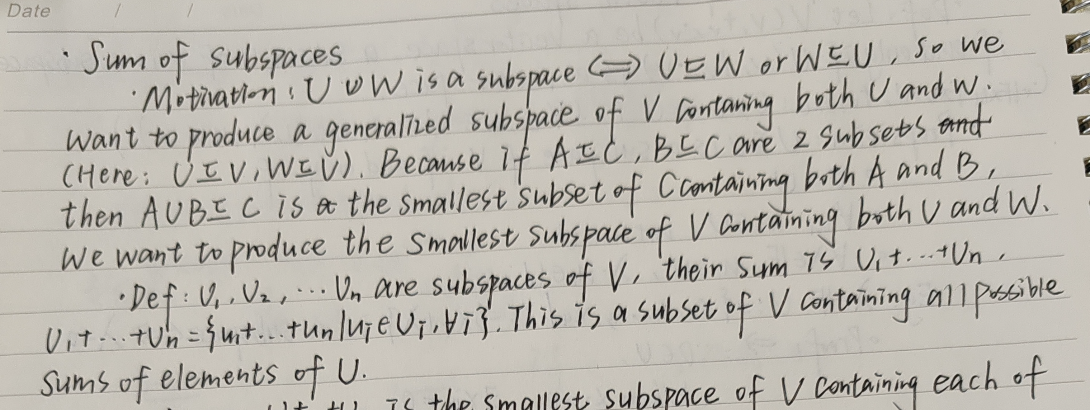 Date / /
· Sum of subspaces
· Motivation: U∪W is a subspace ⟺ U⊆W or W⊆U, so we
want to produce a generalized subspace of V Contaning both U and W.
(Here: U⊆V, W⊆V). Because if A⊆C, B⊆C are 2 subsets and
then A∪B⊆C is a the smallest subset of C containing both A and B,
We want to produce the smallest subspace of V containing both U and W.
· Def: U₁, U₂, ... Un are subspaces of V, their sum is U₁+...+Un,
U₁+...+Un = {u₁+...+un|ui∈Ui, ∀i}. This is a subset of V containing all possible
sums of elements of U.
is the smallest subspace of V containing each of